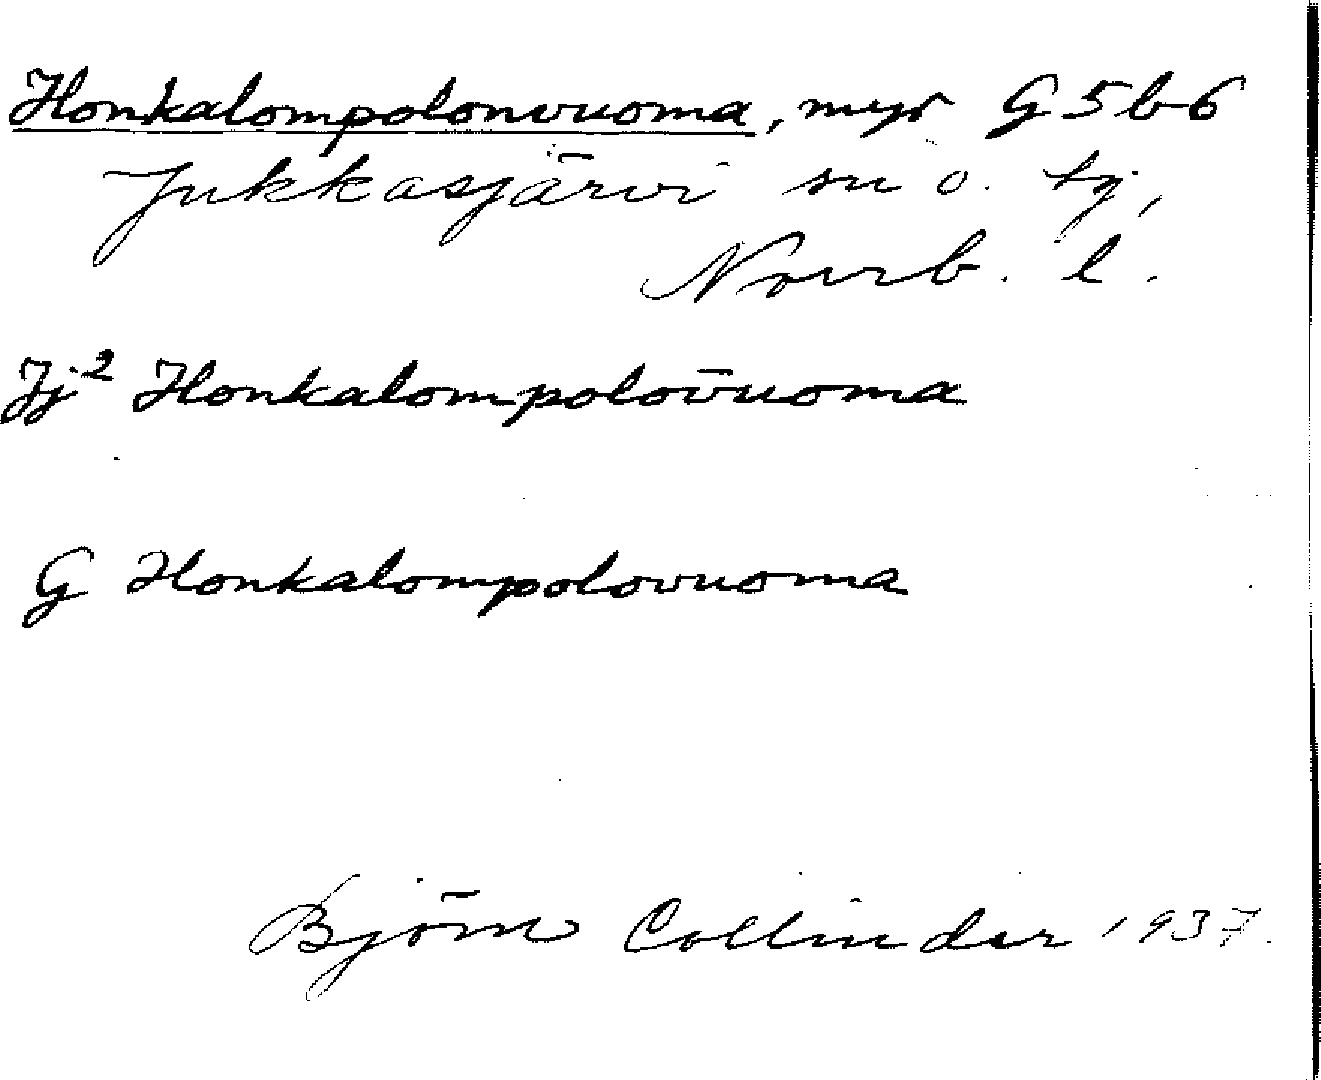 Honkalompolonvuoma, myr G 5 b 6
Jukkasjärvi sn o. tg,
Norrb. l.
Jj² Honkalompolov̄uoma
G Honkalompolovuoma
Björn Collinder 1937.